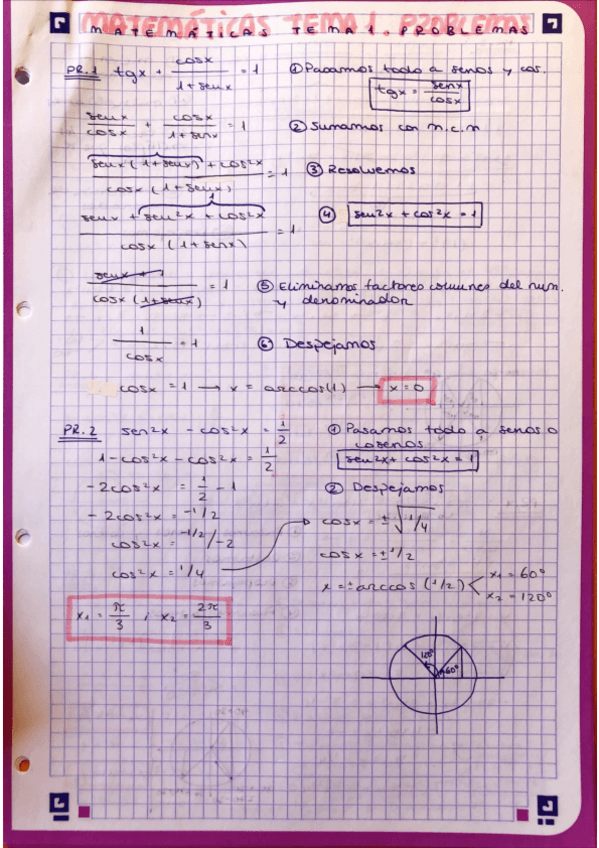 MATEMÁTICAS TEMA 1. PROBLEMAS
MATEMÁTICAS TEMA 1. PROBLEMAS
PR.1 tgx + cosx/(1+senx) = 1 ① Pasamos todo a senos y cos.
tgx = senx/cosx
senx/cosx + cosx/(1+senx) = 1 ② Sumamos con m.c.m
(senx(1+senx)+cos²x)/(cosx(1+senx)) = 1 ③ Resolvemos
1
(senx + sen²x + cos²x)/(cosx(1+senx)) = 1 ④ sen²x + cos²x = 1
(senx + 1)/(cosx(1+senx)) = 1 ⑤ Eliminamos factores comunes del num.
y denominador
1/cosx = 1 ⑥ Despejamos
cosx = 1 → x = arccos(1) → x = 0
PR.2 sen²x - cos²x = 1/2 ① Pasamos todo a senos o
cosenos
1-cos²x - cos²x = 1/2 sen²x + cos²x = 1
-2cos²x = 1/2 - 1 ② Despejamos
-2cos²x = -1/2 cosx = ±√1/4
cos²x = -1/2/-2 cosx = ±1/2
cos²x = 1/4 x = ±arccos(1/2) x₁ = 60º
x₂ = 120º
x₁ = π/3 ; x₂ = 2π/3
120º
60º